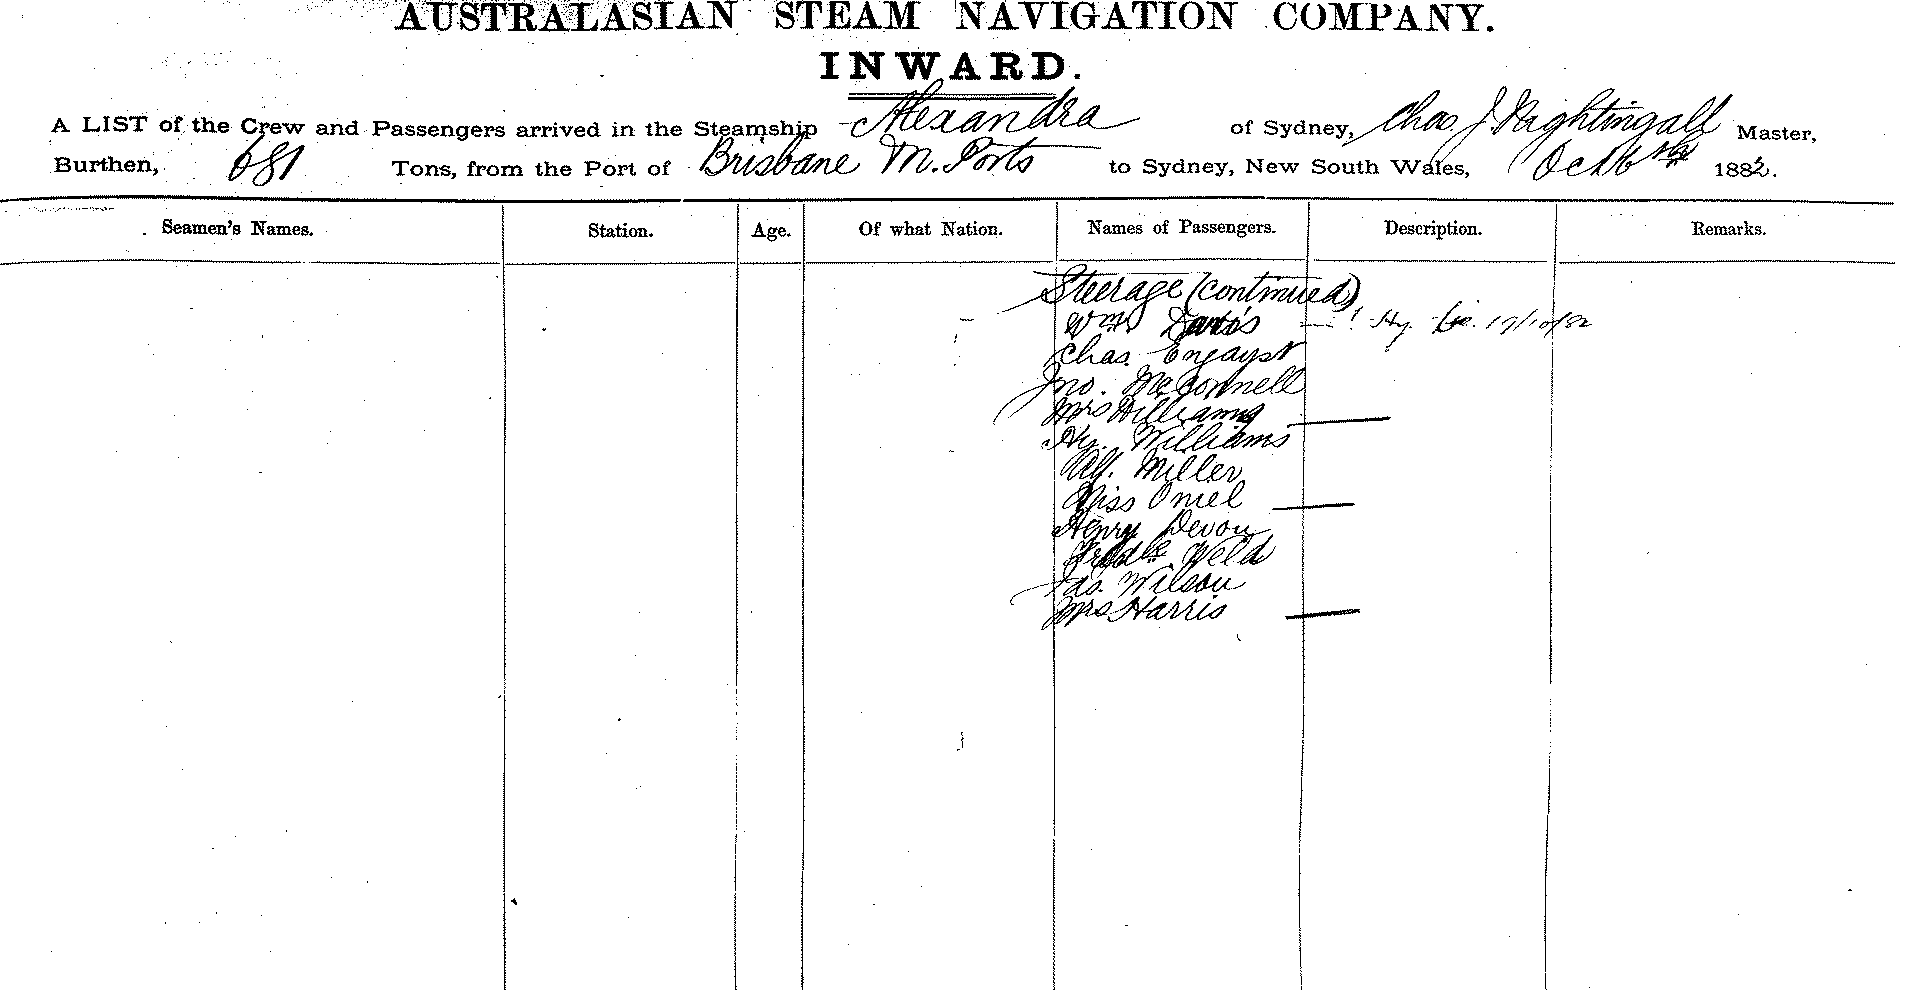 AUSTRALASIAN STEAM NAVIGATION COMPANY.
INWARD.
A LIST of the Crew and Passengers arrived in the Steamship Alexandra of Sydney, Chas. J. Nightingall Master,
Burthen, 681 Tons, from the Port of Brisbane M. Ports to Sydney, New South Wales, Oct 16th 1882.
Seamen's Names. Station. Age. Of what Nation. Names of Passengers. Description. Remarks.
Steerage (continued)
Wm. Davis 17/10/82
Chas.
Jno. McConnell
Mrs Williams
Hy. Williams
Alf. Miller
Miss Oniel
Henry Devon
Fredk. Weld
Jas. Wilson
Mrs Harris